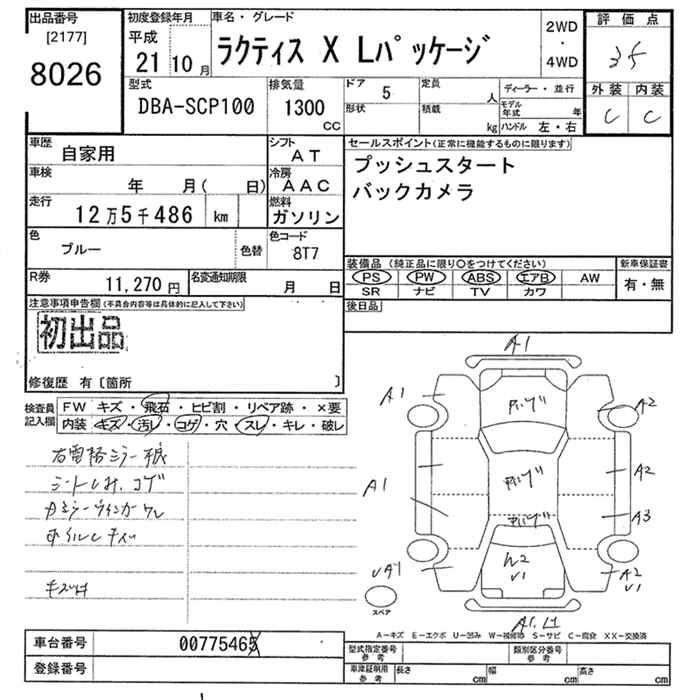 出品番号
[2177]
8026
初度登録年月
平成
21 10 月
車名・グレード
ラクティス X Lパッケージ
2WD
・
4WD
評価点
35
外装 内装
C C
型式
DBA-SCP100
排気量
1300
CC
ドア 5
形状
定員 人
積載 kg
ディーラー・並行
モデル年式 年
ハンドル 左・右
車歴
自家用
シフト
AT
車検
年 月( 日)
冷房
AAC
走行
12万5千486 km
燃料
ガソリン
色
ブルー
色替
色コード
8T7
R券
11,270 円
名変通知期限
月 日
セールスポイント(正常に機能するものに限ります)
プッシュスタート
バックカメラ
装備品 (純正品に限り○をつけてください)
新車保証書
PS PW ABS エアB AW
有・無
SR ナビ TV カワ
後日品
注意事項申告欄(不具合内容等は具体的に記入して下さい)
初出品
修復歴 有〔箇所 〕
検査員
記入欄
FW キズ・飛石・ヒビ割・リペア跡・×要
内装 キズ・汚レ・コゲ・穴・スレ・キレ・破レ
シートしみ、コゲ
A1
A1
A2
A1
A2
A3
A2
V1
W2
V1
スペア
A1
A-キズ E-エクボ U-凹み W-補修跡 S-サビ C-腐食 XX-交換済
車台番号
00775465
登録番号
型式指定番号
参考
類別区分番号
参考
車庫証明用
参考
長さ cm
幅 cm
高さ cm